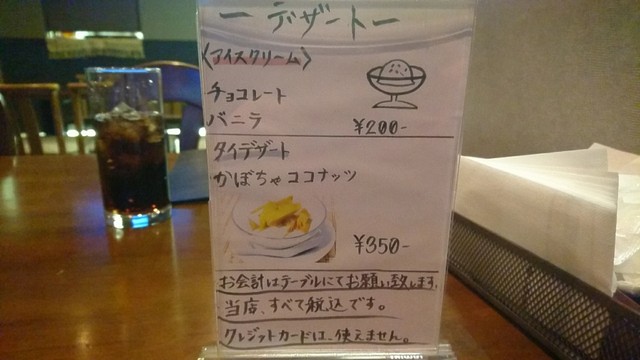 ー デザート ー
〈アイスクリーム〉
チョコレート
バニラ ¥200-
タイデザート
かぼちゃココナッツ
¥350-
お会計はテーブルにてお願い致します。
当店、すべて税込です。
クレジットカードは、使えません。